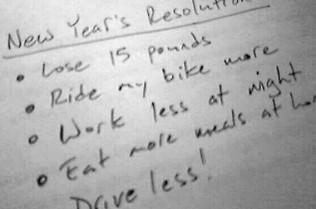 New Year's Resolution
• Lose 15 pounds
• Ride my bike more
• Work less at night
• Eat more meals at
Drive less!